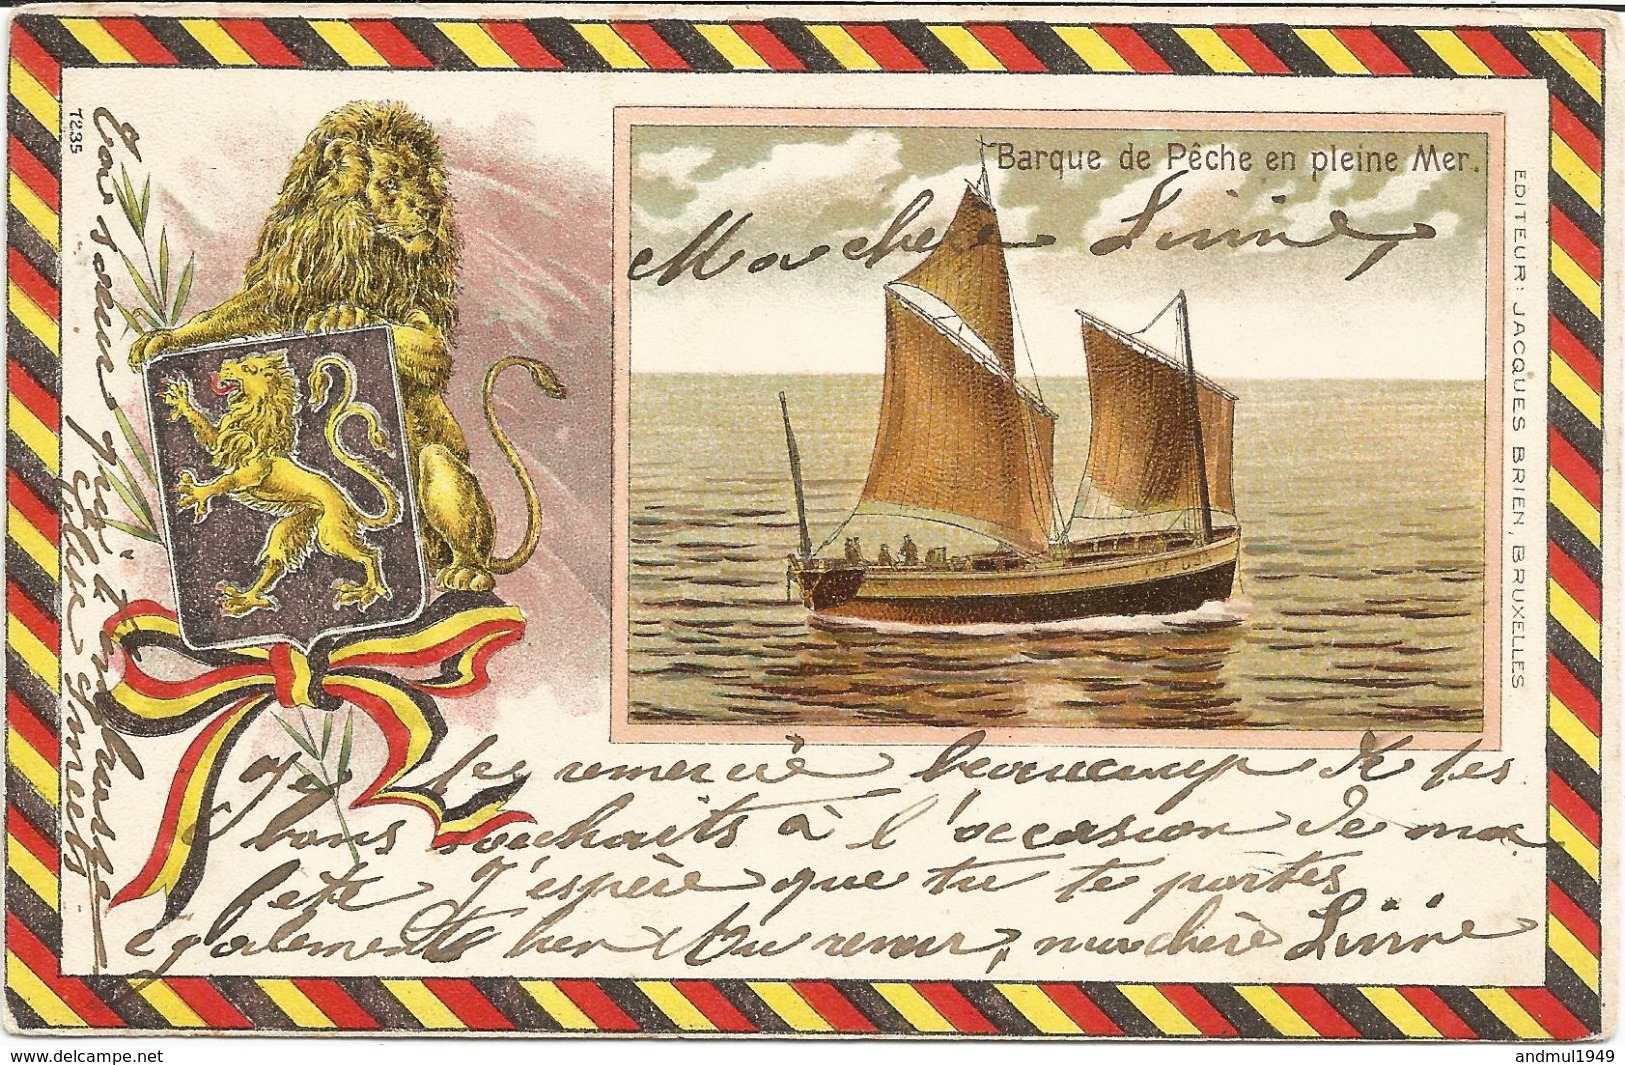 Barque de Pêche en pleine Mer.
Ma chère Livine,
Je te remercie beaucoup de tes
bons souhaits à l'occasion de ma
fête J'espère que tu te portes
également bien Au revoir, ma chère Livine
Ton sœur qui t'embrasse
Claire Smets
7235
EDITEUR: JACQUES BRIEN, BRUXELLES.
delcampe.net
andmul1949